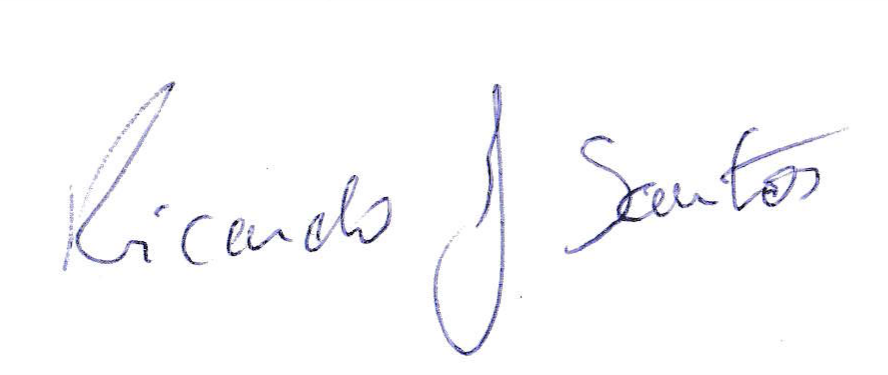 Ricardo J Santos